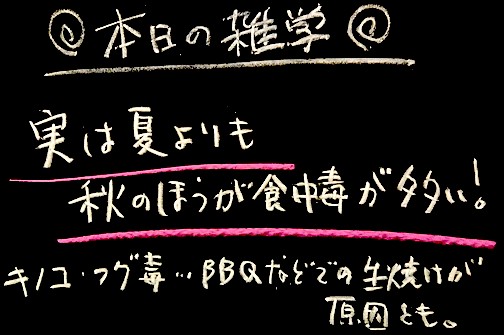 本日の雑学
実は夏よりも
秋のほうが食中毒が多い!。
キノコ・フグ毒…BBQなどでの生焼けが
原因とも。